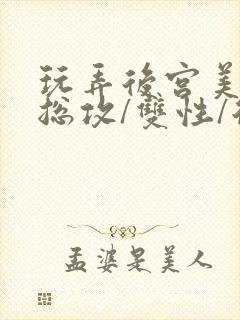 玩弄後宮美
总攻/雙性/
孟婆是美人